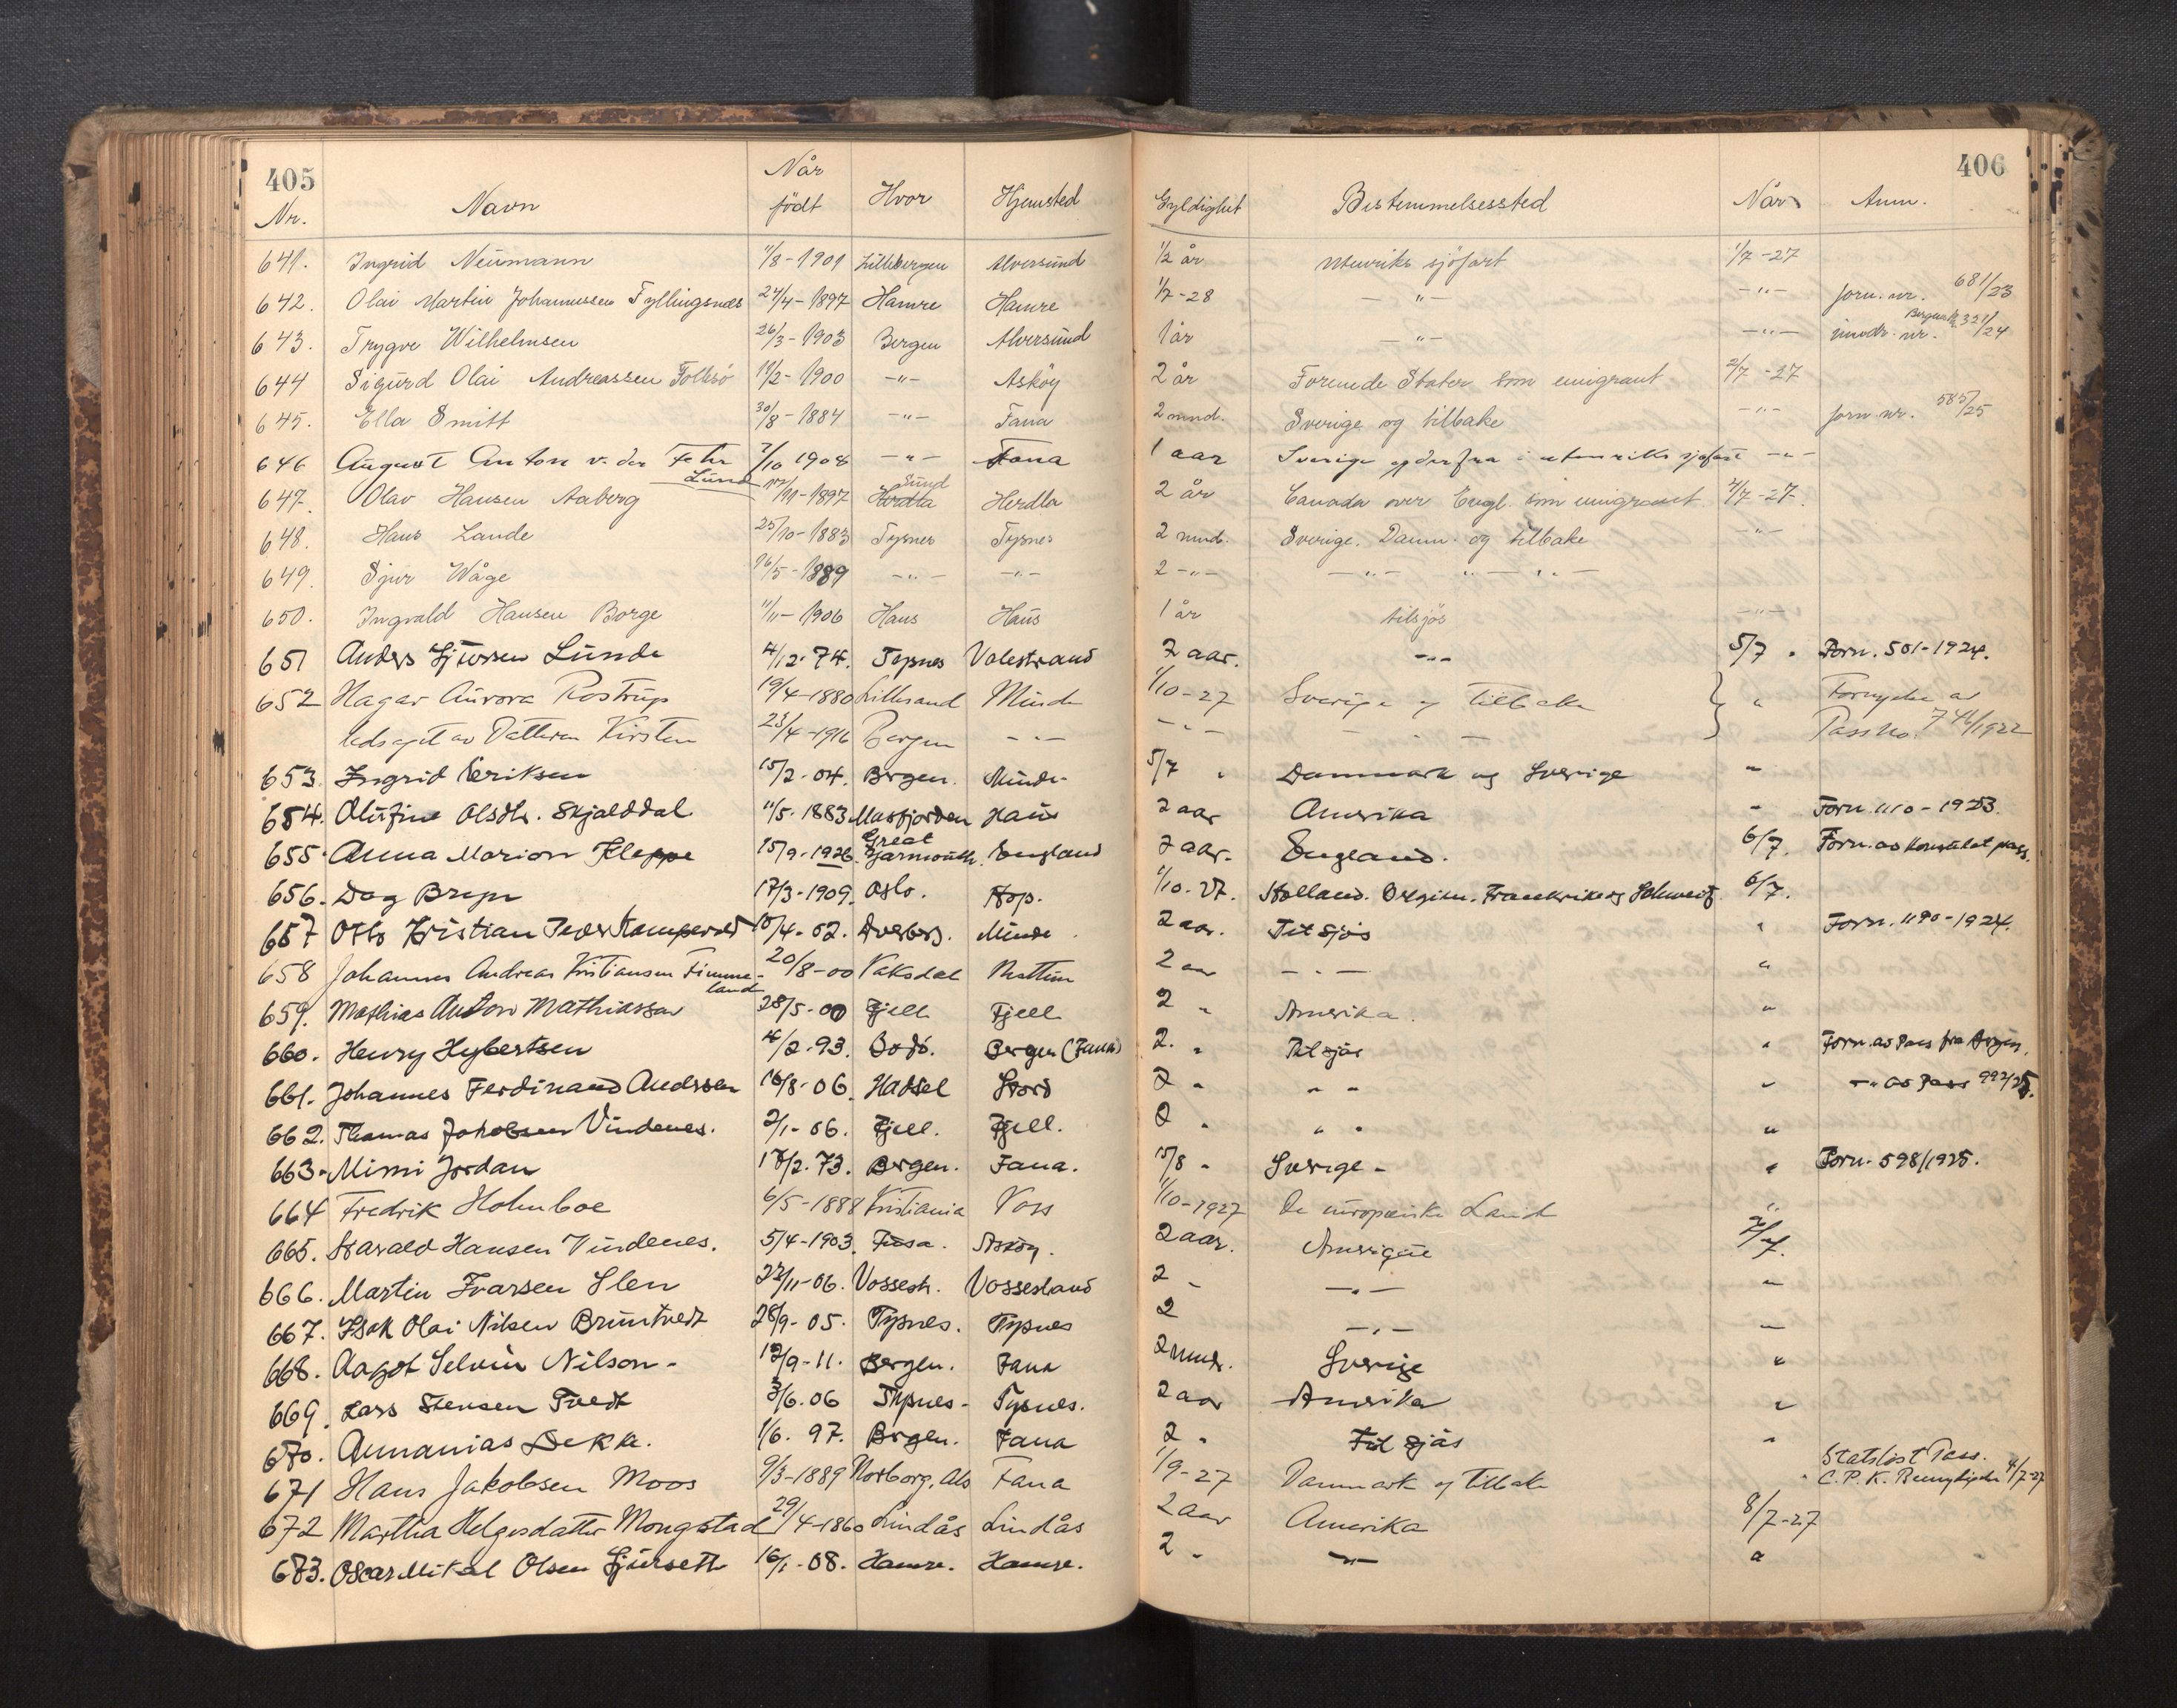 405 406
Nr. Navn Når födt Hvor Hjemsted Gyldighet Bestemmelsessted Når Anm.
641. Ingrid Neumann 11/8-1901 Lillebergen Alversund 1/2 år Utenriks sjöfart 1/7-27
642. Olai Martin Johannessen Fyllingsnæs 24/4-1897 Hamre Hamre 1/7-28 —"— —"— forn. nr. 681/23
643. Trygve Wilhelmsen 26/3-1903 Bergen Alversund 1 år —"— —"— nr. 321/24
644 Sigurd Olai Andreassen Follesö 19/2-1900 —"— Asköy 2 år Forenede Stater som emigrant 2/7-27
645. Ella Smitt 30/8-1884 —"— Fana 2 mnd. Sverige og tilbake —"— forn nr. 585/25
646 August Anton v. der Fehr Lund 7/10 1908 —"— Fana 1 aar Sverige og derfra i utenriks sjøfart —"—
647. Olav Hansen Aaberg 17/11-1897 Herdla Sund Herdla 2 år Canada over Engl. som emigrant 4/7-27.
648. Hans Lande 25/10-1883 Tysnes Tysnes 2 mnd. Sverige. Danm. og tilbake —"—
649. Sjur Wåge 16/5-1889 —"— —"— 2 —"— —"— "— "—
650. Ingvald Hansen Borge 11/11-1906 Haus Haus 1 år tilsjös —"—
651 Anders Sjursen Lunde 4/12-74. Tysnes Valestrand 2 aar. —"— 5/7 " Forn. 501-1924.
652 Hagar Aurora Rostrup 19/4-1880 Lillesand Minde 1/10-27 Sverige og tilbake " Fornyelse av
ledsaget av Datteren Kirsten 23/4-1916 Bergen —"— —"— — " — Pass No. 746/1922
653. Ingrid Eriksen 15/2-04. Bergen. Minde 5/7 " Danmark og Sverige "
654. Olufine Olsdtr. Skjelddal 11/5-1883 Masfjorden Haus 2 aar Amerika " Forn. 1110-1923.
655. Anna Marion Kleppe 15/9-1926. Great Yarmouth. England 2 aar. England. 6/7. Forn. av Konsulat pass.
656. Dag Bryn 17/3-1909. Oslo. Hop. 1/10-27. Holland. Belgien. Frankrike og Schweitz 6/7.
657 Otto Kristian Peder Kampevold 10/4-02. Dverberg. Minde 2 aar. Til sjös " Forn. 1190-1924.
658 Johannes Andreas Kristiansen Fimmeland 20/8-00 Vaksdal Bruttun 2 aar — " — "
659. Mathias Anton Mathiassen 28/5-00 Fjell Fjell 2 " Amerika. "
660. Henry Hybertsen 4/2-93. Bodö. Bergen (Fana) 2. " Til sjös " Forn. av Pass fra Argen.
661. Johannes Ferdinand Andersen 16/8-06. Hadsel Stord 2 " " " " —" av Pass 992/25.
662. Thomas Jakobsen Vindenes. 2/1-06. Fjell. Fjell. 2 " " " "
663. Mimi Jordan 18/2-73. Bergen. Fana. 15/8 " Sverige - " Forn. 598/1925.
664 Fredrik Holmboe 6/5-1888 Kristiania Voss 1/10-1927 De europæiske Land "
665. Harald Hansen Vindenes. 5/4-1903. Fusa. Asköy. 2 aar. Amerika 7/7.
666. Martin Ivarsen Slen 22/11-06. Vossestr. Vossestrand 2 " —"— "
667. Isak Olai Nilsen Bruntvedt 28/9-05. Tysnes. Tysnes 2 —"— "
668. Aagot Selvin Nilson - 12/9-11. Bergen. Fana 2 mndr. Sverige "
669. Lars Stensen Tvedt 3/6.06 Tysnes - Tysnes. 2 aar Amerika "
670. Annanias Dekke. 1/6. 97. Bergen. Fana 2 " Til sjös "
671 Hans Jakobsen Moos 9/3-1889 Norborg, Als Fana 1/9-27 Danmark og tilbake " Statslöst Pass. C.P.K. 4/7-27
672 Martha Helgesdatter Mongstad 29/4-1860 Lindås Lindås 2 aar Amerika 8/7-27
683. Oscar Mikal Olsen Sjursett 16/1-08. Hamre. Hamre. 2 " —"— "